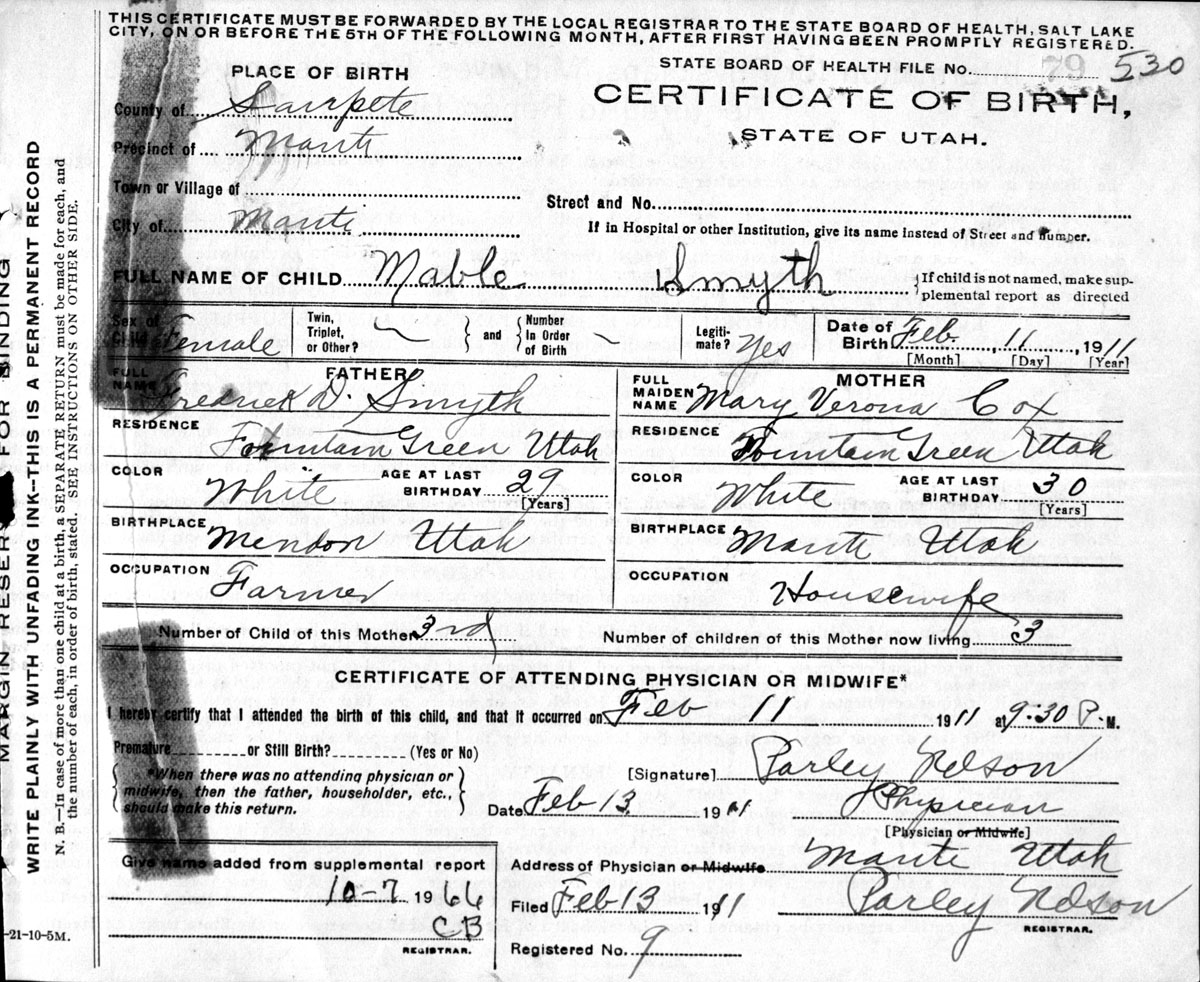 THIS CERTIFICATE MUST BE FORWARDED BY THE LOCAL REGISTRAR TO THE STATE BOARD OF HEALTH, SALT LAKE
CITY, ON OR BEFORE THE 5TH OF THE FOLLOWING MONTH, AFTER FIRST HAVING BEEN PROMPTLY REGISTERED.
STATE BOARD OF HEALTH FILE No. 79 530
PLACE OF BIRTH
CERTIFICATE OF BIRTH,
STATE OF UTAH.
County of Sanpete
Precinct of Manti
Town or Village of
Street and No.
City of Manti
If in Hospital or other Institution, give its name instead of Street and Number.
FULL NAME OF CHILD Mable Smyth
If child is not named, make sup-
plemental report as directed
Sex of Child Female
Twin, Triplet, or Other?
and
Number In Order of Birth
Legiti-mate? Yes
Date of Birth Feb. 11, 1911
[Month] [Day] [Year]
FATHER
FULL NAME Fredrick D. Smyth
RESIDENCE Fountain Green Utah
COLOR White AGE AT LAST BIRTHDAY 29
[Years]
BIRTHPLACE Mendon Utah
OCCUPATION Farmer
MOTHER
FULL MAIDEN NAME Mary Verona Cox
RESIDENCE Fountain Green Utah
COLOR White AGE AT LAST BIRTHDAY 30
[Years]
BIRTHPLACE Manti Utah
OCCUPATION Housewife
Number of Child of this Mother 3rd Number of children of this Mother now living 3
CERTIFICATE OF ATTENDING PHYSICIAN OR MIDWIFE*
I hereby certify that I attended the birth of this child, and that it occurred on Feb 11 1911 at 9:30 P. M.
Premature or Still Birth? (Yes or No)
*When there was no attending physician or
midwife, then the father, householder, etc.,
should make this return.
[Signature] Parley Nelson
Date Feb 13 1911 Physician
[Physician or Midwife]
Give name added from supplemental report
10-7 1966
CB
REGISTRAR.
Address of Physician or Midwife Manti Utah
Filed Feb 13 1911 Parley Nelson
REGISTRAR.
Registered No. 9
-21-10-5M.
MARGIN RESERV FOR BINDING
WRITE PLAINLY WITH UNFADING INK--THIS IS A PERMANENT RECORD
N. B.—In case of more than one child at a birth, a SEPARATE RETURN must be made for each, and
the number of each, in order of birth, stated. SEE INSTRUCTIONS ON OTHER SIDE.